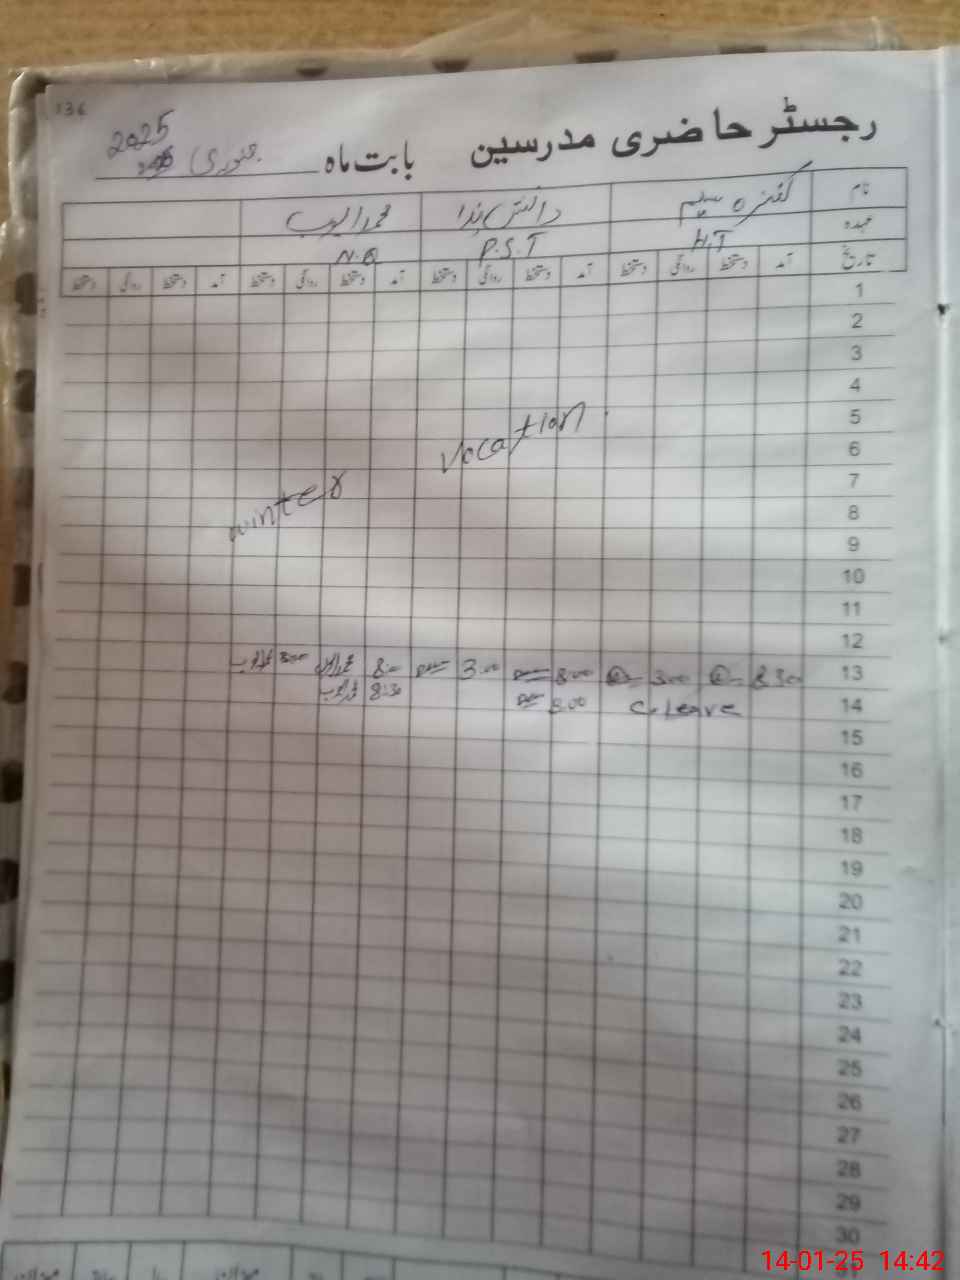 136
رجسٹر حاضری مدرسین بابت ماہ جنوری 2025
نام سلیم دانش ندا محمد ایوب
عہدہ H.T P.S.T N.Q
تاریخ آمد دستخط روانگی دستخط آمد دستخط روانگی دستخط آمد دستخط روانگی دستخط آمد دستخط روانگی دستخط
1
2
3
4
5
6
7
8
9
10
11
12
winter vocation
13 8 30 3 00 8 00 3 00 8 00 3 00
14 C.leave 8 00 8:30
15
16
17
18
19
20
21
22
23
24
25
26
27
28
29
30
14-01-25 14:42